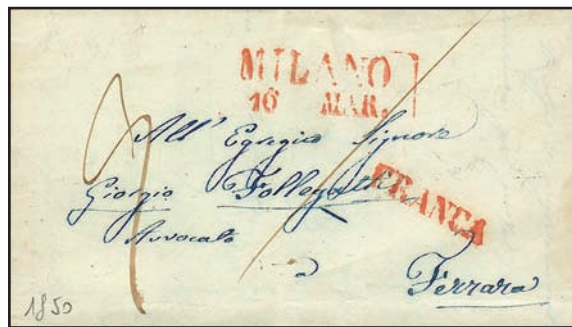 MILANO
16 MAR.
All' Egregio Signore
Giorgio
FRANCA
Avvocato
a
Ferrara
1850